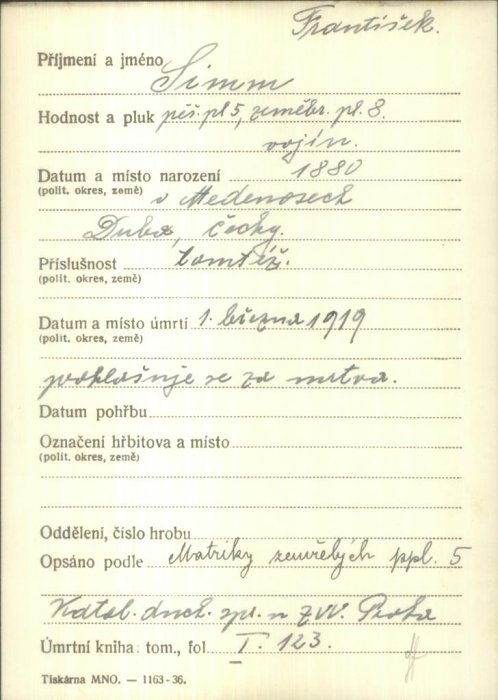 František.
Příjmení a jméno Simm
Hodnost a pluk pěš. pl 5, zeměbr. pl. 8.
vojín.
Datum a místo narození 1880
(polit. okres, země) v Medenosech
Duba, Čechy.
Příslušnost tamtéž.
(polit. okres, země)
Datum a místo úmrtí 1. března 1919
(polit. okres, země)
prohlašuje se za mrtva.
Datum pohřbu
Označení hřbitova a místo
(polit. okres, země)
Oddělení, číslo hrobu
Opsáno podle Matriky zemřelých ppl. 5
Katol. duch. spr. u ZVV. Praha
Úmrtní kniha: tom., fol. I. 123.
Tiskárna MNO. — 1163-36.